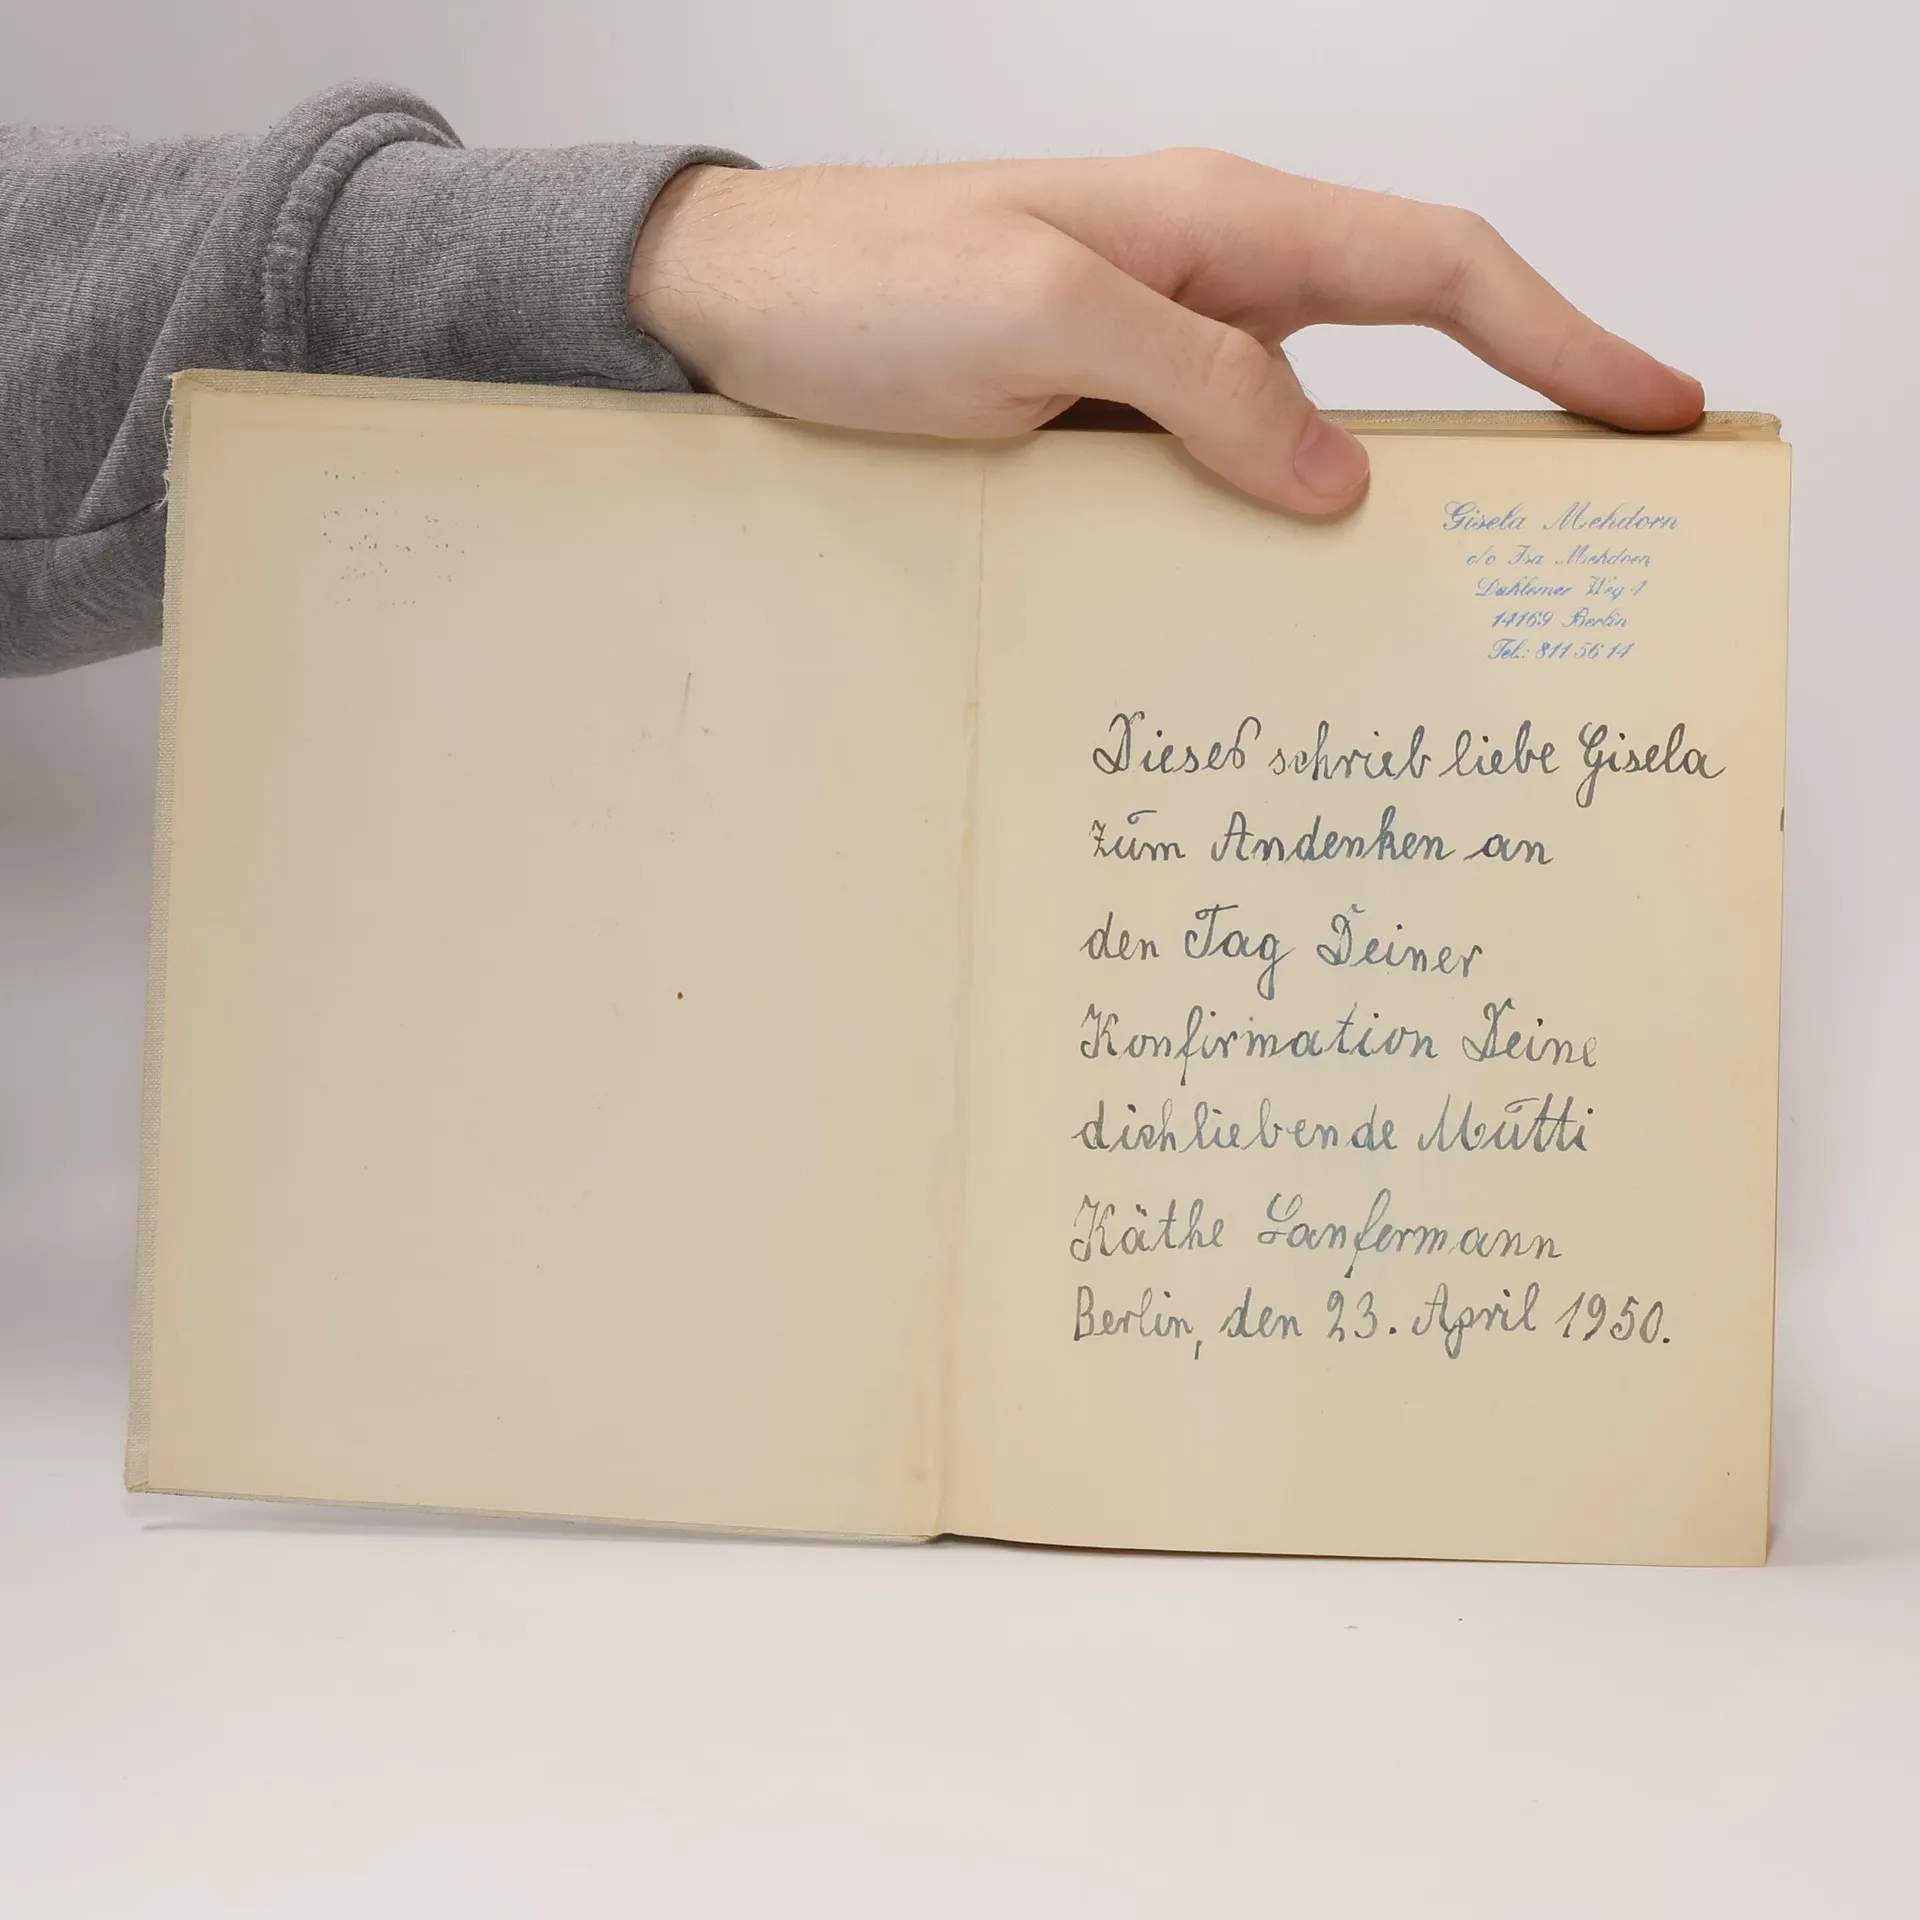 Gisela Mehdorn
c/o Isa Mehdorn
Dahlemer Weg 4
14169 Berlin
Tel.: 811 56 14
Dieses schrieb liebe Gisela
zum Andenken an
den Tag Deiner
Konfirmation Deine
dichliebende Mutti
Käthe Lanfermann
Berlin, den 23. April 1950.